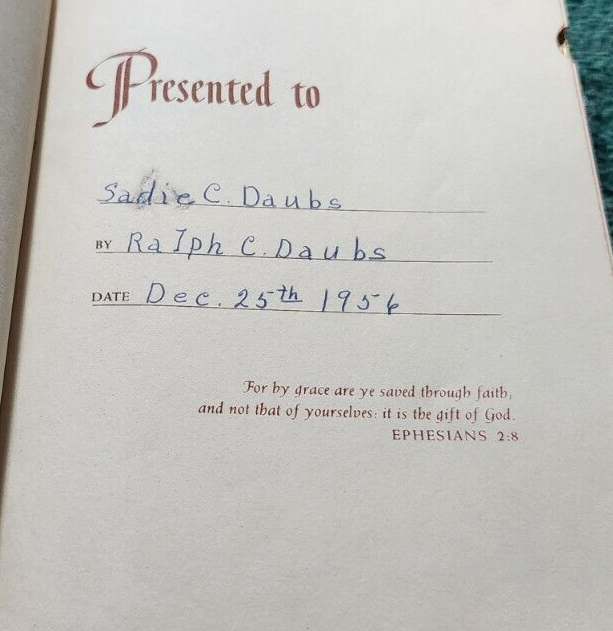 Presented to
Sadie C. Daubs
BY Ralph C. Daubs
DATE Dec. 25th 1956
For by grace are ye saved through faith,
and not that of yourselves: it is the gift of God.
EPHESIANS 2:8